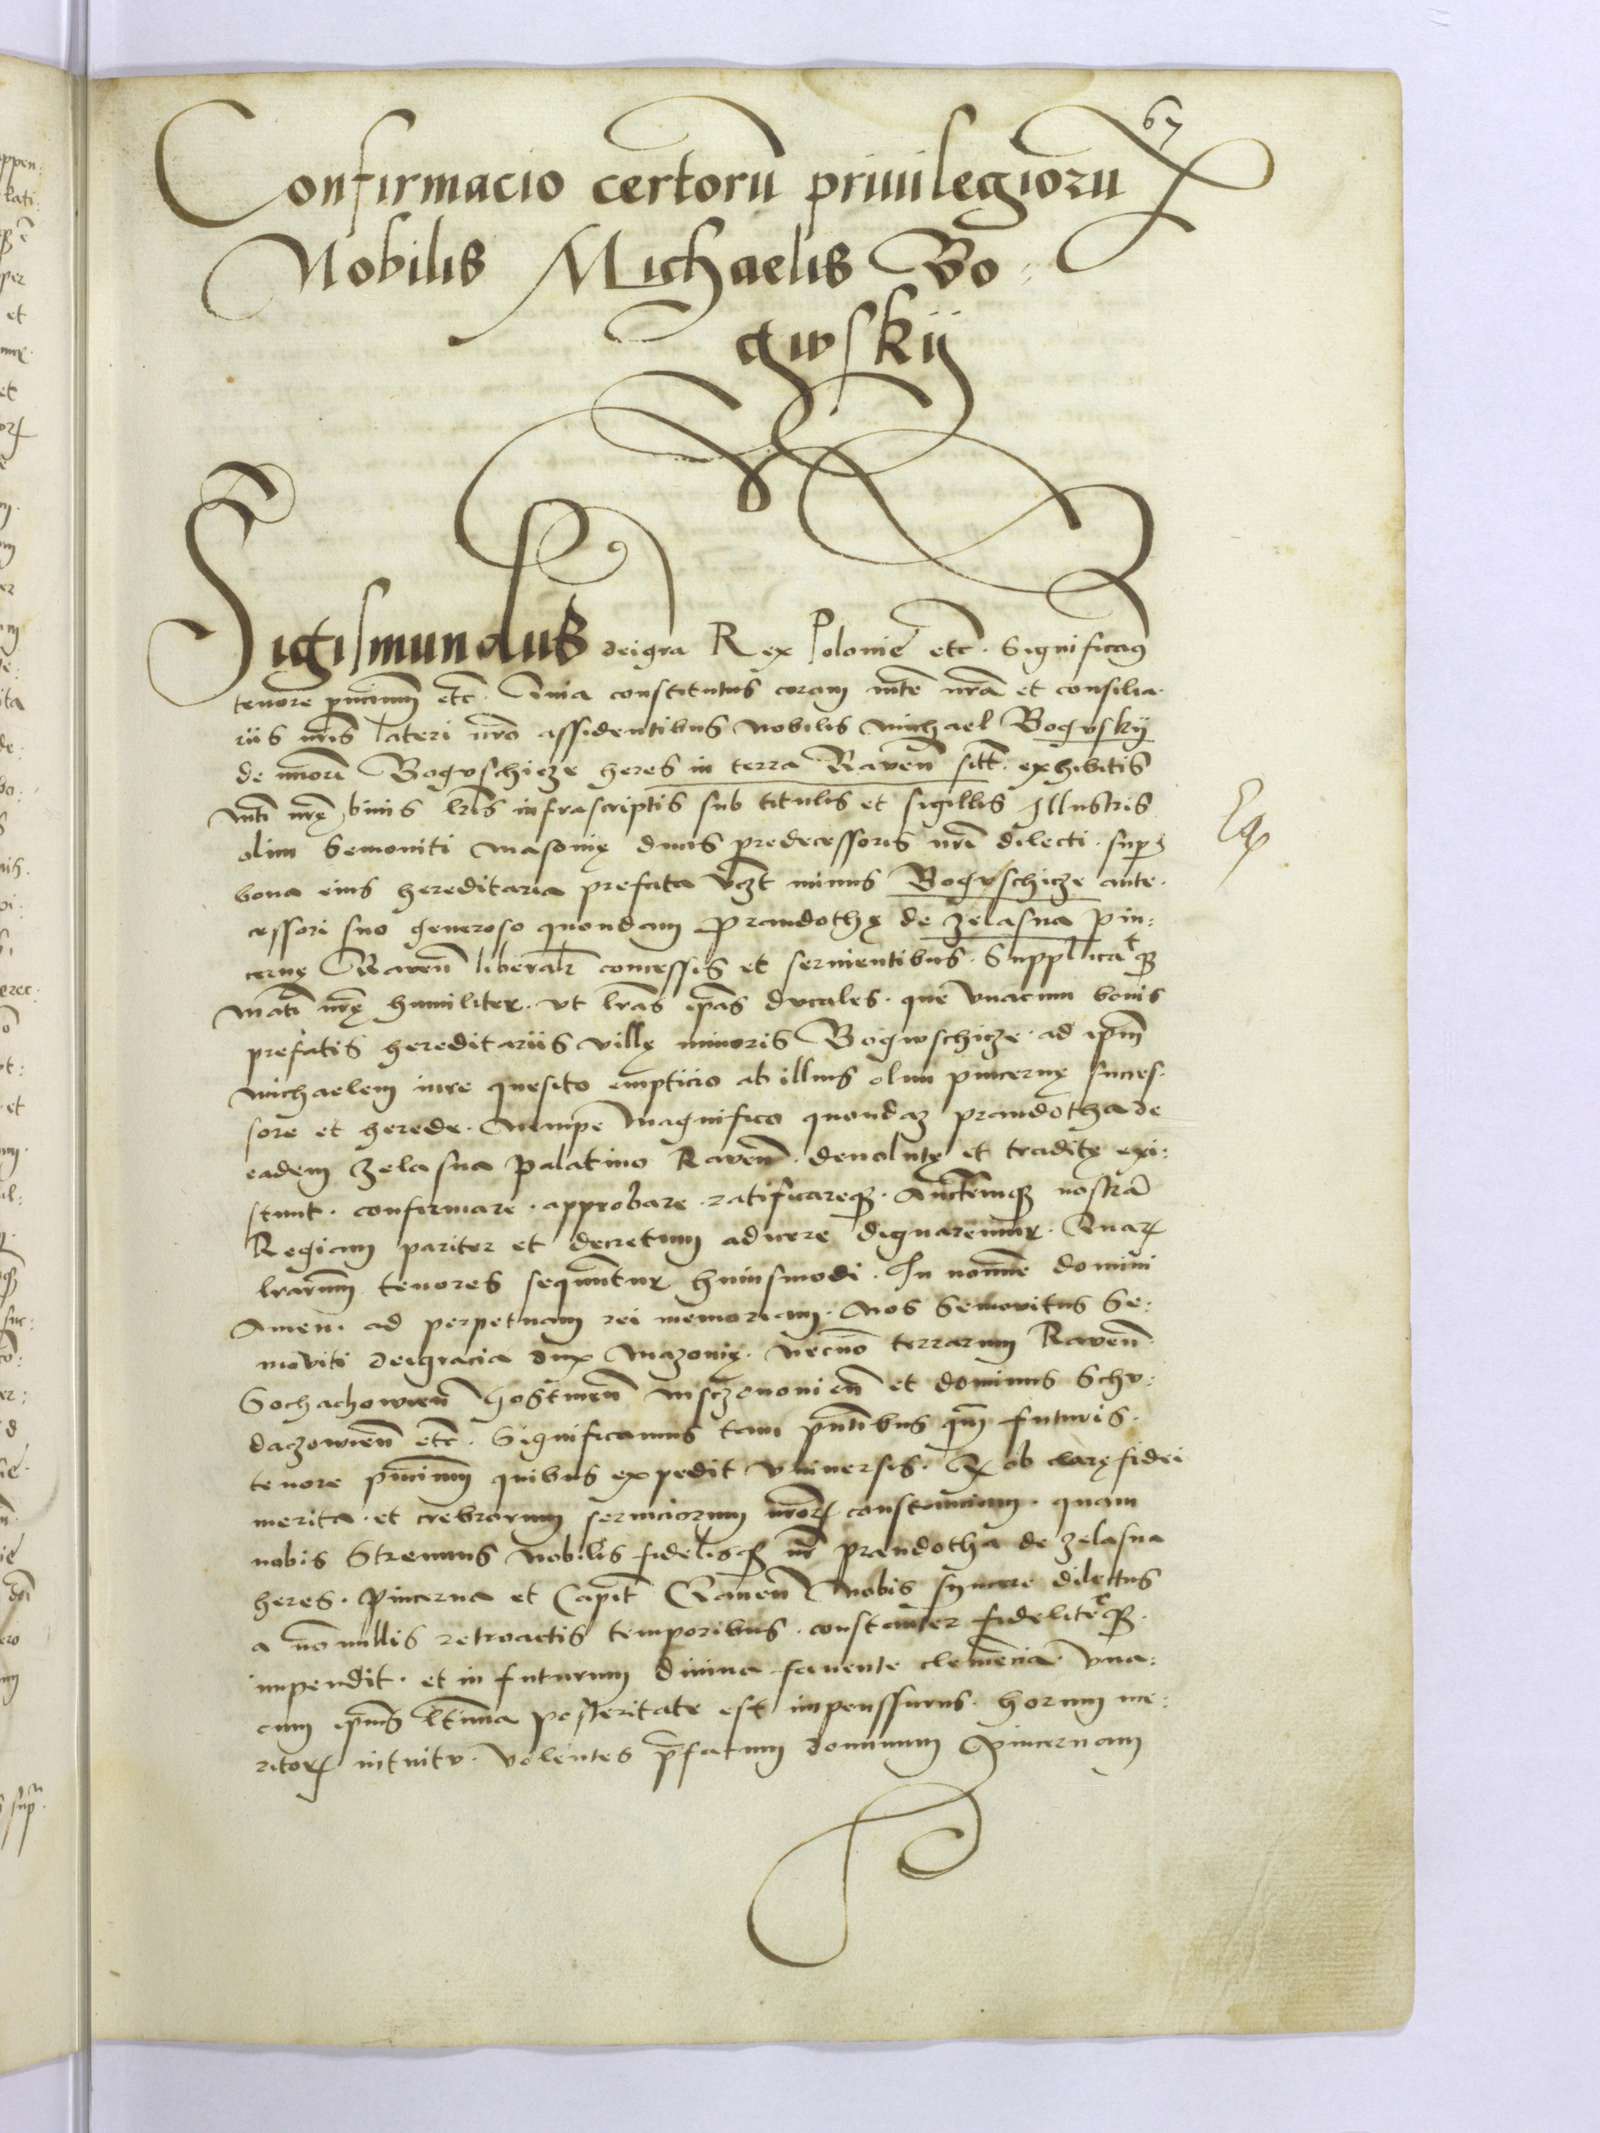 67
Confirmacio certorū priuilegiorū
Nobilis Michaelis Bo-
gwskij
Sigismundus deigra Rex Polonie etc. Significam9
tenore pñcium etc. Quia constitutus coram mte nrā et consilia-
riis nris lateri nrō assidentibus Nobilis Michael Bogvskij
de minori Bogvschicze heres in terra Raven̄ sitt. exhibitis
Mti nrę binis lris infrascriptis sub titulis et sigillis Illustris
olim Semoviti Masovię ducis predecessoris nri dilecti. super
bona eius hereditaria prefata vzt minus Bogvschicze ante-
cessori suo generoso quondam Prandothę de Zelasna pin-
cernę Raven̄ liberalr concessis et servientibus. Supplicatqȝ
Mati nrę humiliter. vt lrās ipās dvcales. que vnacum bonis
prefatis hereditariis villę minoris Bogwschicze. ad ipm̄
Michaelem iure quesito empticio ab illius olim pincernę succes-
sore et herede. Nempe Magnifico quondaȝ prandotha de
eadem Zelasna palatino Raven̄. devolutę et traditę exi-
stunt. confirmare. approbare. ratificareqȝ. Auctemqȝ nostrā
Regiam pariter et decretum adicere dignaremur. Quarꝝ
lrarum tenores sequuntur huiusmodi. In nomine domini
Amen. ad perpetuam rei memoriam. Nos Semovitus Se-
moviti deigracia dux Mazovię. Necnō terrarum Raven̄.
Sochachowien̄ Gostinen̄ Msczonovien̄ et dominus Schv-
daczowien̄ etc. Significamus tam pn̄tibus qm̄ futuris.
tenore pn̄cium quibus expedit vniversis. Qȝ ob clarę fidei
merita. et crebrorum serviciorum nrorꝝ constanciam. quam
nobis Strenuus Nobilis fidelisqȝ nr prandotha de Zelasna
heres. Pincerna et Capit Raven̄ Nobis syncere dilectus
a nōnullis retroactis temporibus. constanter fideliterqȝ.
impendit. et in futurum divina favente clemēcia. vna-
cum ipius ltima posteritate est impenssurus. horum me-
ritorꝝ intuitv. volentes pfatum dominum Pincernam